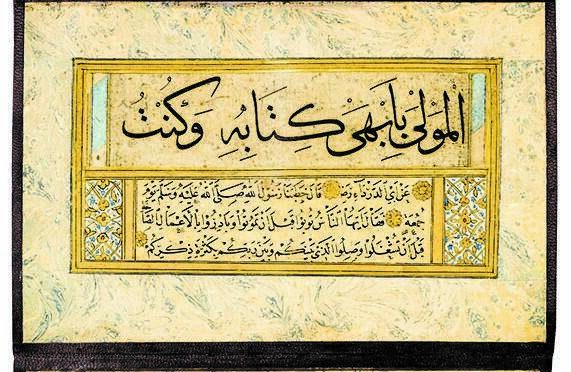 المَوْلَى بِأَبْهَى كِتَابِهِ وَكُنْتُ
عن أبي الدرداء قال خطبنا رسول الله صلى الله عليه وسلم يوم
جمعة فقال يا أيها الناس توبوا قبل أن تموتوا وبادروا بالأعمال
قبل أن تشغلوا وصلوا الذي بينكم وبين ربكم بكثرة ذكركم